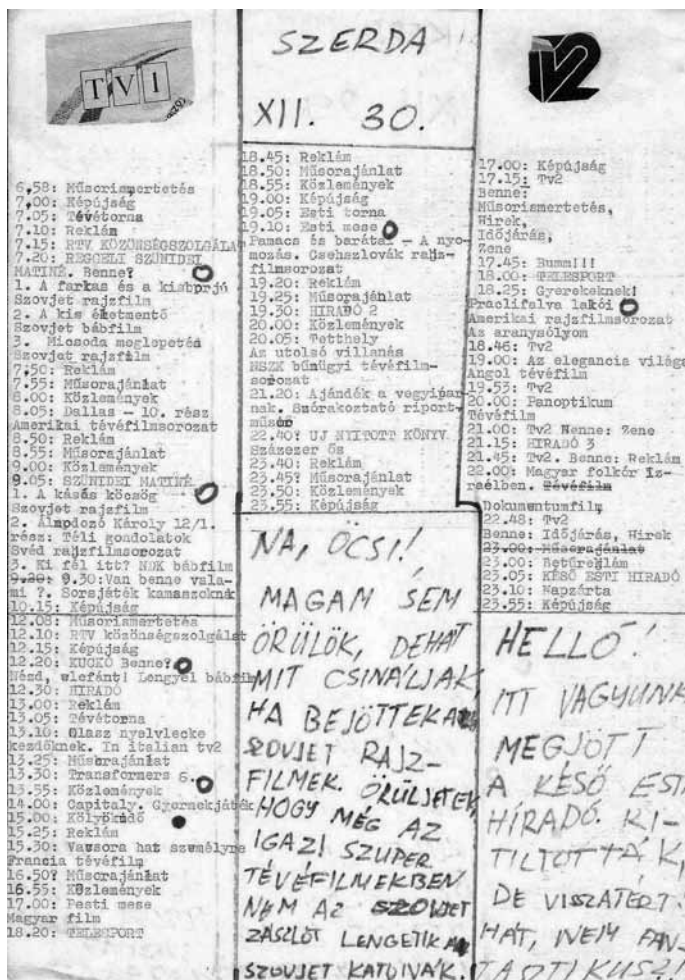 TV1
6,58: Műsorismertetés
7,00: Képújság
7.05: Tévétorna
7.10: Reklám
7.15: RTV KÖZÖNSÉGSZOLGÁLAT
7.20: REGGELI SZÜNIDEI
MATINÉ. Benne?
1. A farkas és a kisborjú
Szovjet rajzfilm
2. A kis életmentő
Szovjet bábfilm
3. Micsoda meglepetés
Szovjet rajzfilm
7.50: Reklám
7.55: Műsorajánlat
8.00: Közlemények
8.05: Dallas - 10. rész
Amerikai tévéfilmsorozat
8.50: Reklám
8.55: Műsorajánlat
9.00: Közlemények
9.05: SZÜNIDEI MATINÉ.
1. A kásás köcsög
Szovjet rajzfilm
2. Álmodozó Károly 12/1.
rész: Téli gondolatok
Svéd rajzfilmsorozat
3. Ki fél itt? NDK bábfilm
9.20: 9.30:Van benne vala-
mi ?. Sorsjáték kamaszoknak
10.15: Képújság
12.08: Műsorismertetés
12.10: RTV közönségszolgálat
12.15: Képújság
12.20: KUCKÓ Benne?
Nézd, elefánt! Lengyel bábfilm
12.30: HIRADÓ
13.00: Reklám
13.05: Tévétorna
13.10: Olasz nyelvlecke
kezdőknek. In italian tv2
13.25: Műsorajánlat
13.30: Transformers 6.
13.55: Közlemények
14.00: Capitaly. Gyermekjáték
15.00: Kölyökidő
15.25: Reklám
15.30: Vacsora hat személyre
Francia tévéfilm
16.50? Műsorajánlat
16.55: Közlemények
17.00: Pesti mese
Magyar film
18.20: TELESPORT
SZERDA
XII. 30.
18.45: Reklám
18.50: Műsorajánlat
18.55: Közlemények
19.00: Képújság
19.05: Esti torna
19.10: Esti mese
Pamacs és barátai - A nyo-
mozás. Csehszlovák rajz-
filmsorozat
19.20: Reklám
19.25: Műsorajánlat
19.30: HIRADÓ 2
20.00: Közlemények
20.05: Tetthely
Az utolsó villanás
NSZK bűnügyi tévéfilm-
sorozat
21.20: Ajándék a vegyipar-
nak. Szórakoztató riport-
műsor
22.40? UJ NYITOTT KÖNYV
Százezer ős
23.40: Reklám
23.45? Műsorajánlat
23.50: Közlemények
23.55: Képújság
NA, ÖCSI!
MAGAM SEM
ÖRÜLÖK, DEHÁT
MIT CSINÁLJAK,
HA BEJÖTTEK A
SZOVJET RAJZ-
FILMEK. ÖRÜLJETEK,
HOGY MÉG AZ
IGAZI SZUPER
TÉVÉFILMEKBEN
NEM AZ SZOVJET
ZÁSZLÓT LENGETIK A
SZOVJET KATONÁK.
TV2
17.00: Képújság
17.15: Tv2
Benne:
Műsorismertetés,
Hirek,
Időjárás,
Zene
17.45: Bumm!!!
18.00: TELESPORT
18.25: Gyerekeknek!
Praclifalva lakói
Amerikai rajzfilmsorozat
Az aranysólyom
18.46: Tv2
19.00: Az elegancia világa
Angol tévéfilm
19.53: Tv2
20.00: Panoptikum
Tévéfilm
21.00: Tv2 Benne: Zene
21.15: HIRADÓ 3
21.45: Tv2. Benne: Reklám
22.00: Magyar folkór Iz-
raélben. Tévéfilm
Dokumentumfilm
22.48: Tv2
Benne: Időjárás, Hirek
23.00: Műsorajánlat
23.00: Betűreklám
23.05: KÉSŐ ESTI HIRADÓ
23.10: Napzárta
23.55: Képújság
HELLÓ!
ITT VAGYUNK
MEGJÖTT
A KÉSŐ ESTI
HÍRADÓ. KI-
TILTOTTÁK,
DE VISSZATÉRT.
HÁT, NEM FAN-
TASZTIKUSZ!